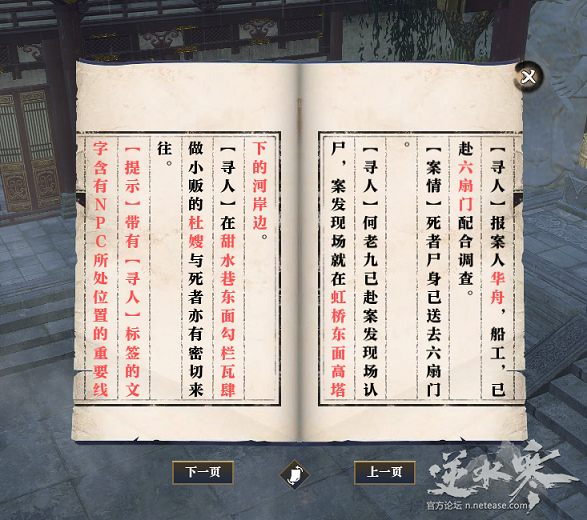 【寻人】报案人华舟，船工，已
赴六扇门配合调查。
【案情】死者尸身已送去六扇门
。
【寻人】何老九已赴案发现场认
尸，案发现场就在虹桥东面高塔
下的河岸边。
【寻人】在甜水巷东面勾栏瓦肆
做小贩的杜嫂与死者亦有密切来
往。
【提示】带有【寻人】标签的文
字含有NPC所处位置的重要线
下一页
上一页
逆水寒
官方论坛 n.netease.com